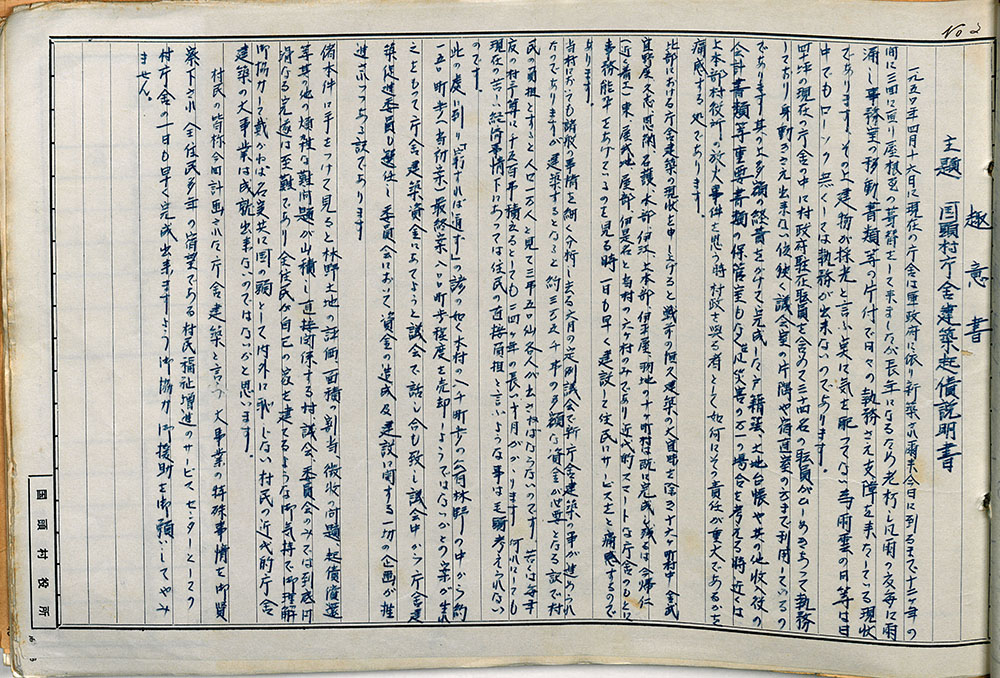 No 2
趣意書
主題 国頭村庁舎建築起債説明書
一九五〇年四月十六日に現在の庁舎は軍政府に依り新築され爾来今日に到るまで十三ヶ年の
間に三回に亘り屋根瓦の葺替をして来ましたが長年になるため老朽し風雨の度毎に雨
漏し事務室の移動書類等の片付で日々の執務さえ支障を来たしている現状
であります。その上建物が採光と言ふ点に気を配ってない為雨雲の日等は日
中でもローソク無くしては執務が出来ないのであります。
坪の現在の庁舎の中に村政府駐在職員を含めて三十四名の職員がひしめきあって執務
しており身動きさえ出来ない位狭く議会室の片隅や宿直室の方まで利用しているの
であります。其の上多額の経費をかけて完成した戸籍簿、土地台帳や其の他収入役の
会計書類等重要書類の保管室もなく火災等の万一の場合を考える時近くは
上本部村役所の放火事件を思う時村政を与る者として如何にその責任が重大であるかを
痛感する処であります。
北部における庁舎建築の現状を申し上げると戦前の恒久建築の大宜味を除き十六ヶ町村中金武
宜野座久志恩納名護本部伊江上本部伊平屋羽地の十ヶ町村は既に完成し残るは今帰仁
(近く着工)東、屋我地、屋部伊是名と当村の六ヶ村のみであり近代的でスマートな庁舎のもとに
事務能率をあげているのを見る時一日も早く建設して住民にサービスせと痛感するので
あります。
当村においても諸般の事情を細く分析し去る六月の定例議会で新庁舎建築の事が進められ
たのでありますが建築するとなると約三万五千弗の多額な資金が必要となる訳で村
民の負担とすると人口一万人と見て三弗五〇仙各人が出さねばならないのです。若しくは毎年
度の村予算に千五百弗積立るとしても二四ヶ年の長い年月がかゝります。何れにしても
現在の苦しい経済事情下にあっては住民の直接負担と言ふような事は毛頭考えられない
のです。
此の度に到り「窮すれば通ず」の諺の如く本村の八千町歩の公有林野の中から約
一五〇町歩
之をもって庁舎建築資金にあてようと議会で話し合も致し議会中から庁舎建
築促進委員も選任し委員会において資金の造成及建設に関する一切の企画が推
進されつゝある訳であります
偖本件に手をつけて見ると林野土地の評価、面積の割当、徴収の問題、起債償還
等其の他の煩雑な難問題が山積し直接関係する村議会、委員会のみでは到底円
滑なる完遂は至難であり全住民が自己の家を建てるような御気持で御理解
御協力して戴かねば名実共に国の頭として内外に恥じない村民の近代的庁舎
建築の大事業は成就出来ないのではないかと思います。
村民の皆様今回計画された庁舎建築と言う大事業の特殊事情を御賢
察下され全住民多年の宿望である村民福祉増進のサービスセンターとしての
村庁舎の一日も早く完成出来ますよう御協力御援助を御願いしてやみ
ません。
国頭村役所